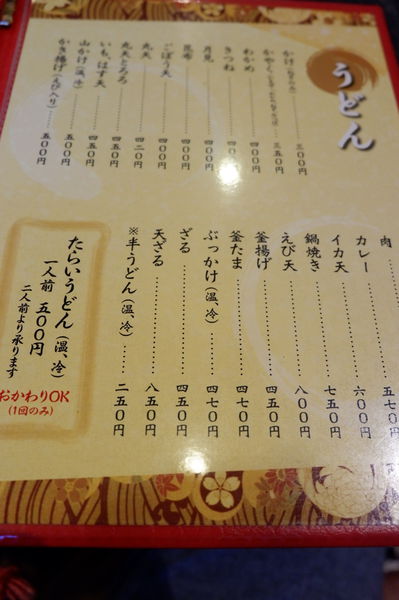 うどん
かけ
かやく
三五〇円
わかめ
きつね
月見
四〇〇円
昆布
四〇〇円
ごぼう天
四〇〇円
丸天
四〇〇円
丸天とろろ
いちはす天
四五〇円
山かけ(温、冷)
五〇〇円
かき揚げ(えび入り)
五〇〇円
肉
五七〇円
カレー
六〇〇円
イカ天
七五〇円
鍋焼き
えび天
八〇〇円
釜揚げ
四五〇円
釜たま
四七〇円
ぶっかけ(温、冷)
四七〇円
ざる
四五〇円
天ざる
八五〇円
※半うどん(温、冷)
二五〇円
たらいうどん(温、冷)
一人前 五〇〇円
二人前より承ります
おかわりOK
(1回のみ)